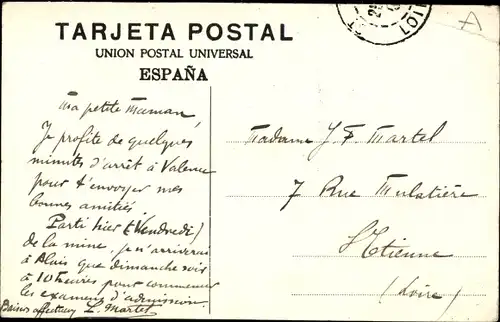 TARJETA POSTAL
UNION POSTAL UNIVERSAL
ESPAÑA
Ma petite Maman,
Je profite de quelques
minutes d'arrêt à Valence
pour t'envoyer mes
bonnes amitiés.
Parti hier (Vendredi)
de la mine, je n'arriverai
à Alais que dimanche soir
à 10 heures pour commencer
les examens d'admission.
Baisers affectueux L. Martel
Madame J. F. Martel
7 Rue Mulatière
St Etienne
(Loire)
LOIR
A